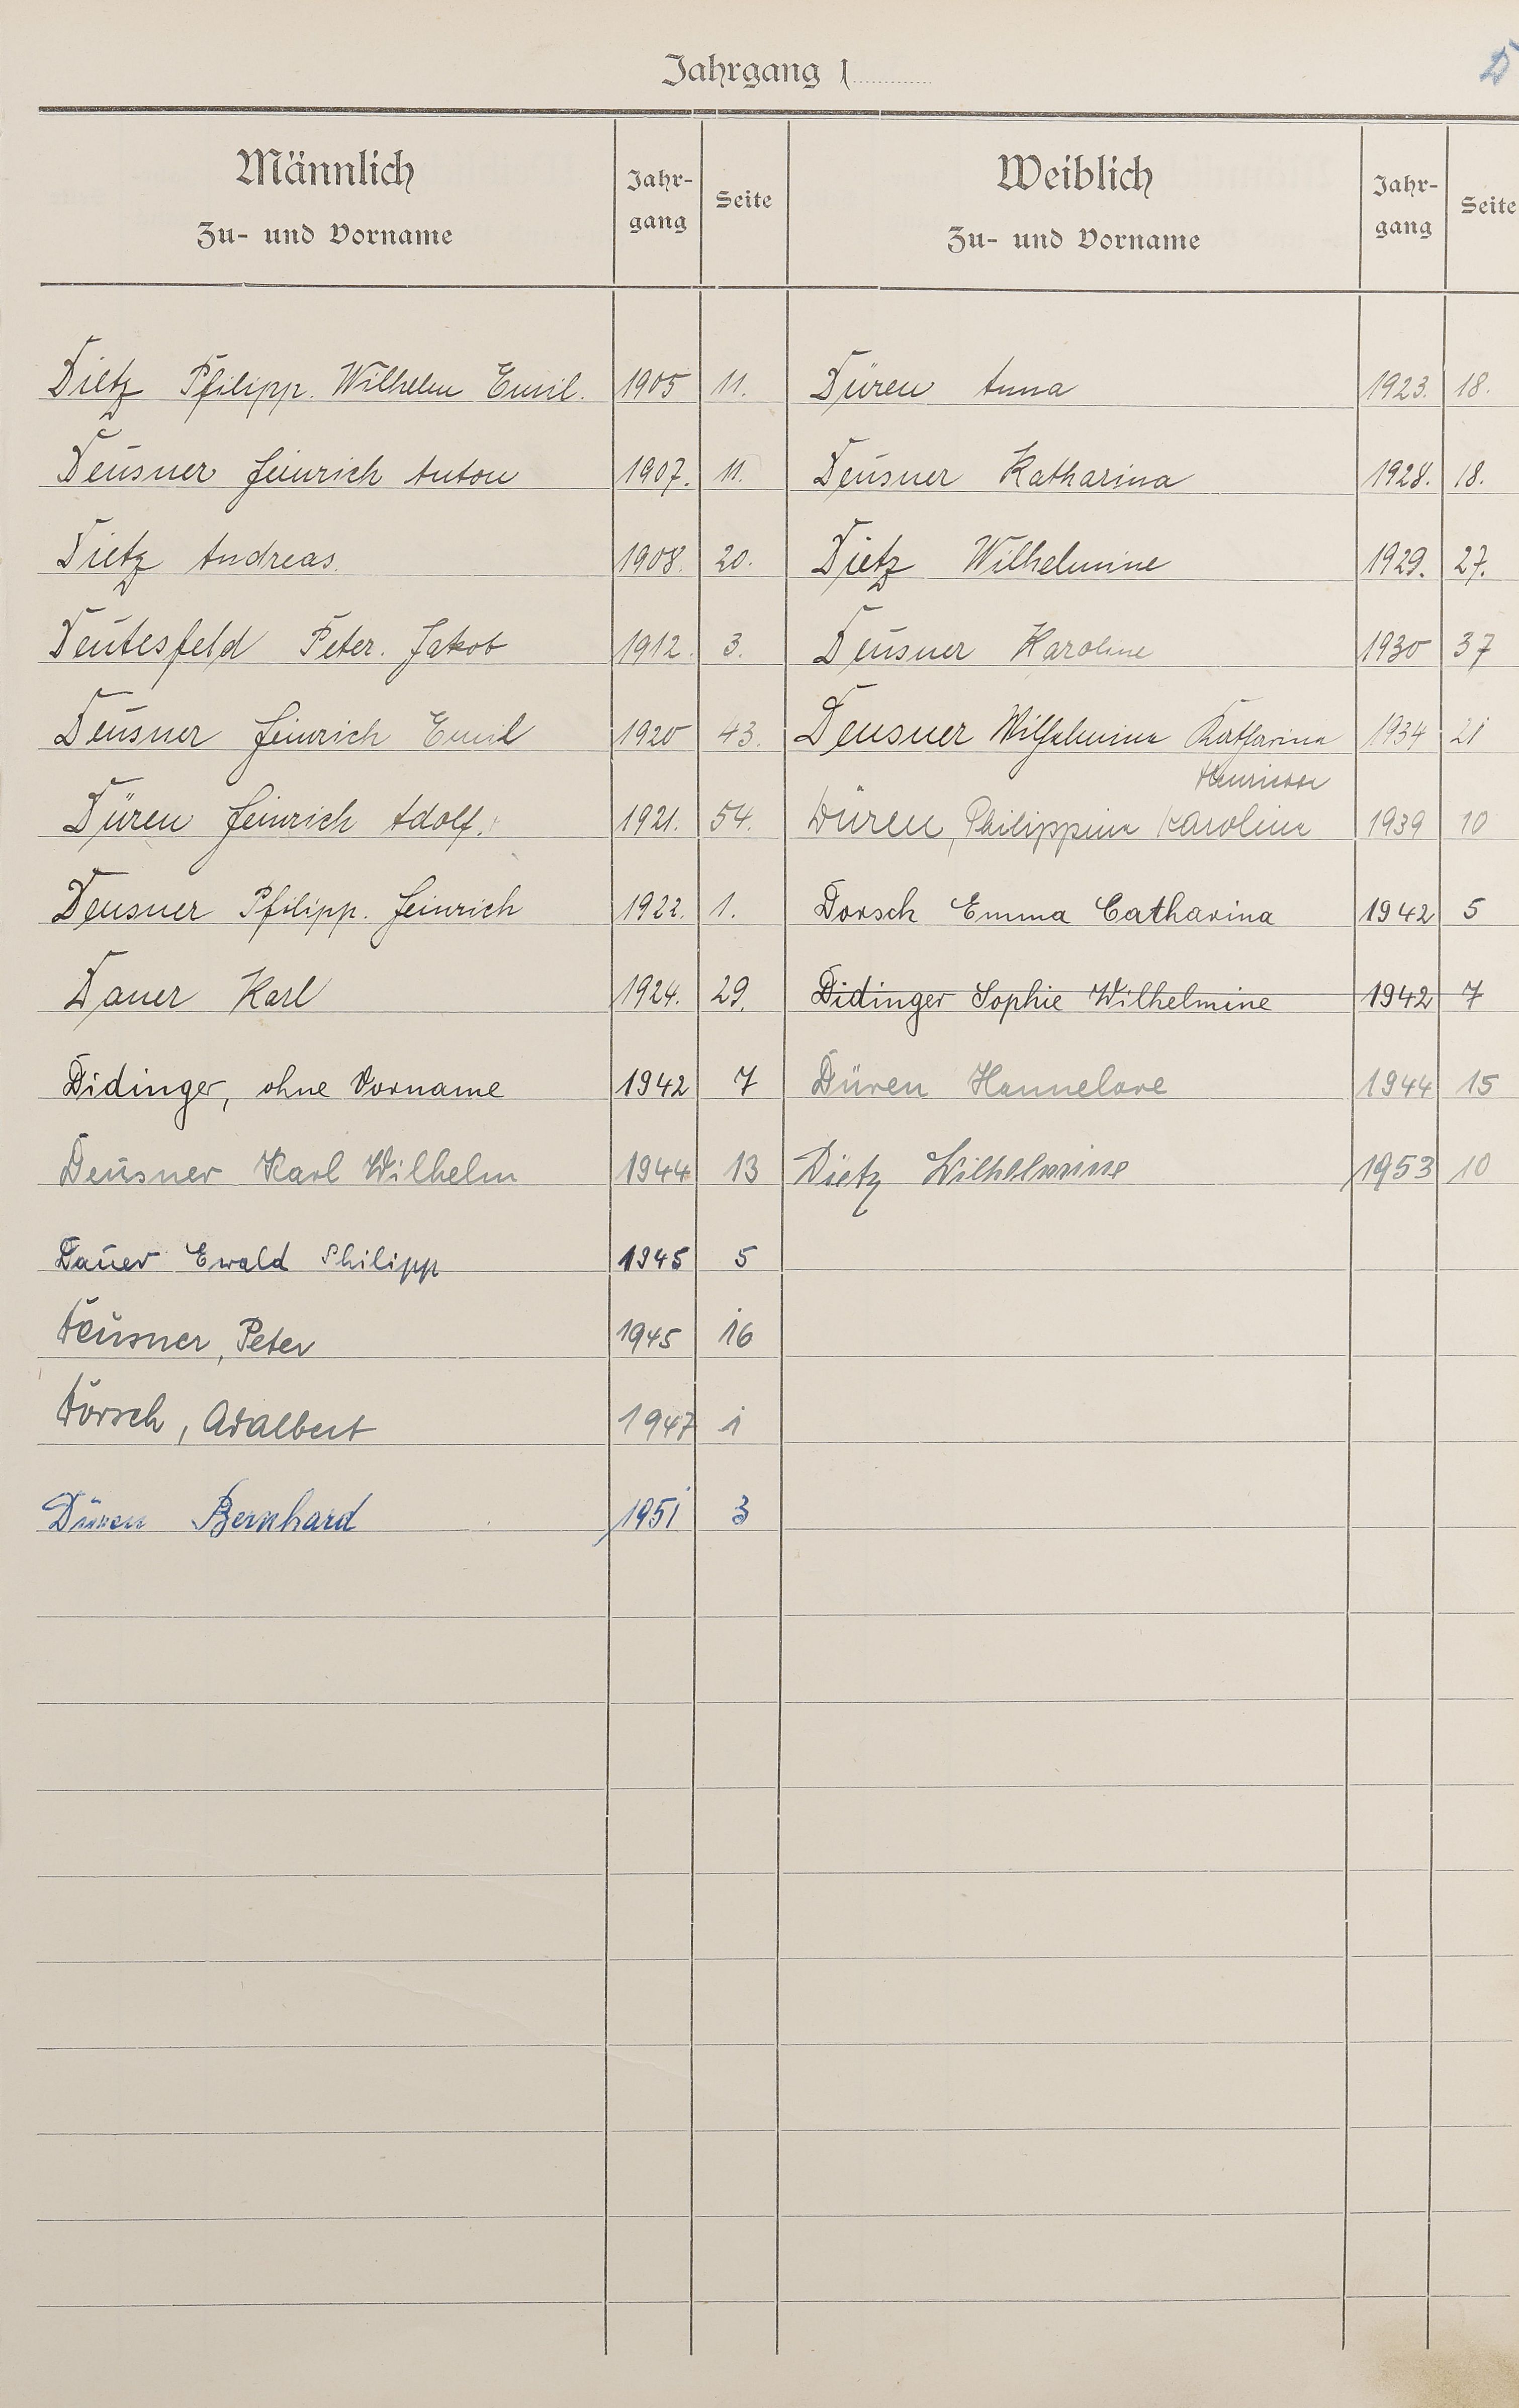 Jahrgang 1
D
Männlich
Zu- und Vorname
Jahr-
gang
Seite
Weiblich
Zu- und Vorname
Jahr-
gang
Seite
Dietz Philipp. Wilhelm Emil. 1905 11. Düren Anna 1923. 18.
Deusner Heinrich Anton 1907. 11. Deusner Katharina 1928. 18.
Dietz Andreas. 1908. 20. Dietz Wilhelmine 1929. 27.
Deutesfeld Peter. Jakob 1912. 3. Deusner Karoline 1930 37
Deusner Heinrich Emil 1920 43. Deusner Wilhelmine Katharina 1934 21
Henriette
Düren Heinrich Adolf. 1921. 54. Düren, Philippine Karoline 1939 10
Deusner Philipp. Heinrich 1922. 1. Dorsch Emma Catharina 1942 5
Dauer Karl 1924. 29. Didinger Sophie Wilhelmine 1942 7
Didinger, ohne Vorname 1942 7 Düren Hannelore 1944 15
Deusner Karl Wilhelm 1944 13 Dietz Wilhelmine 1953 10
Dauer Ewald Philipp 1945 5
Deusner, Peter 1945 16
Dorsch, Adalbert 1947 1
Düren Bernhard 1951 3